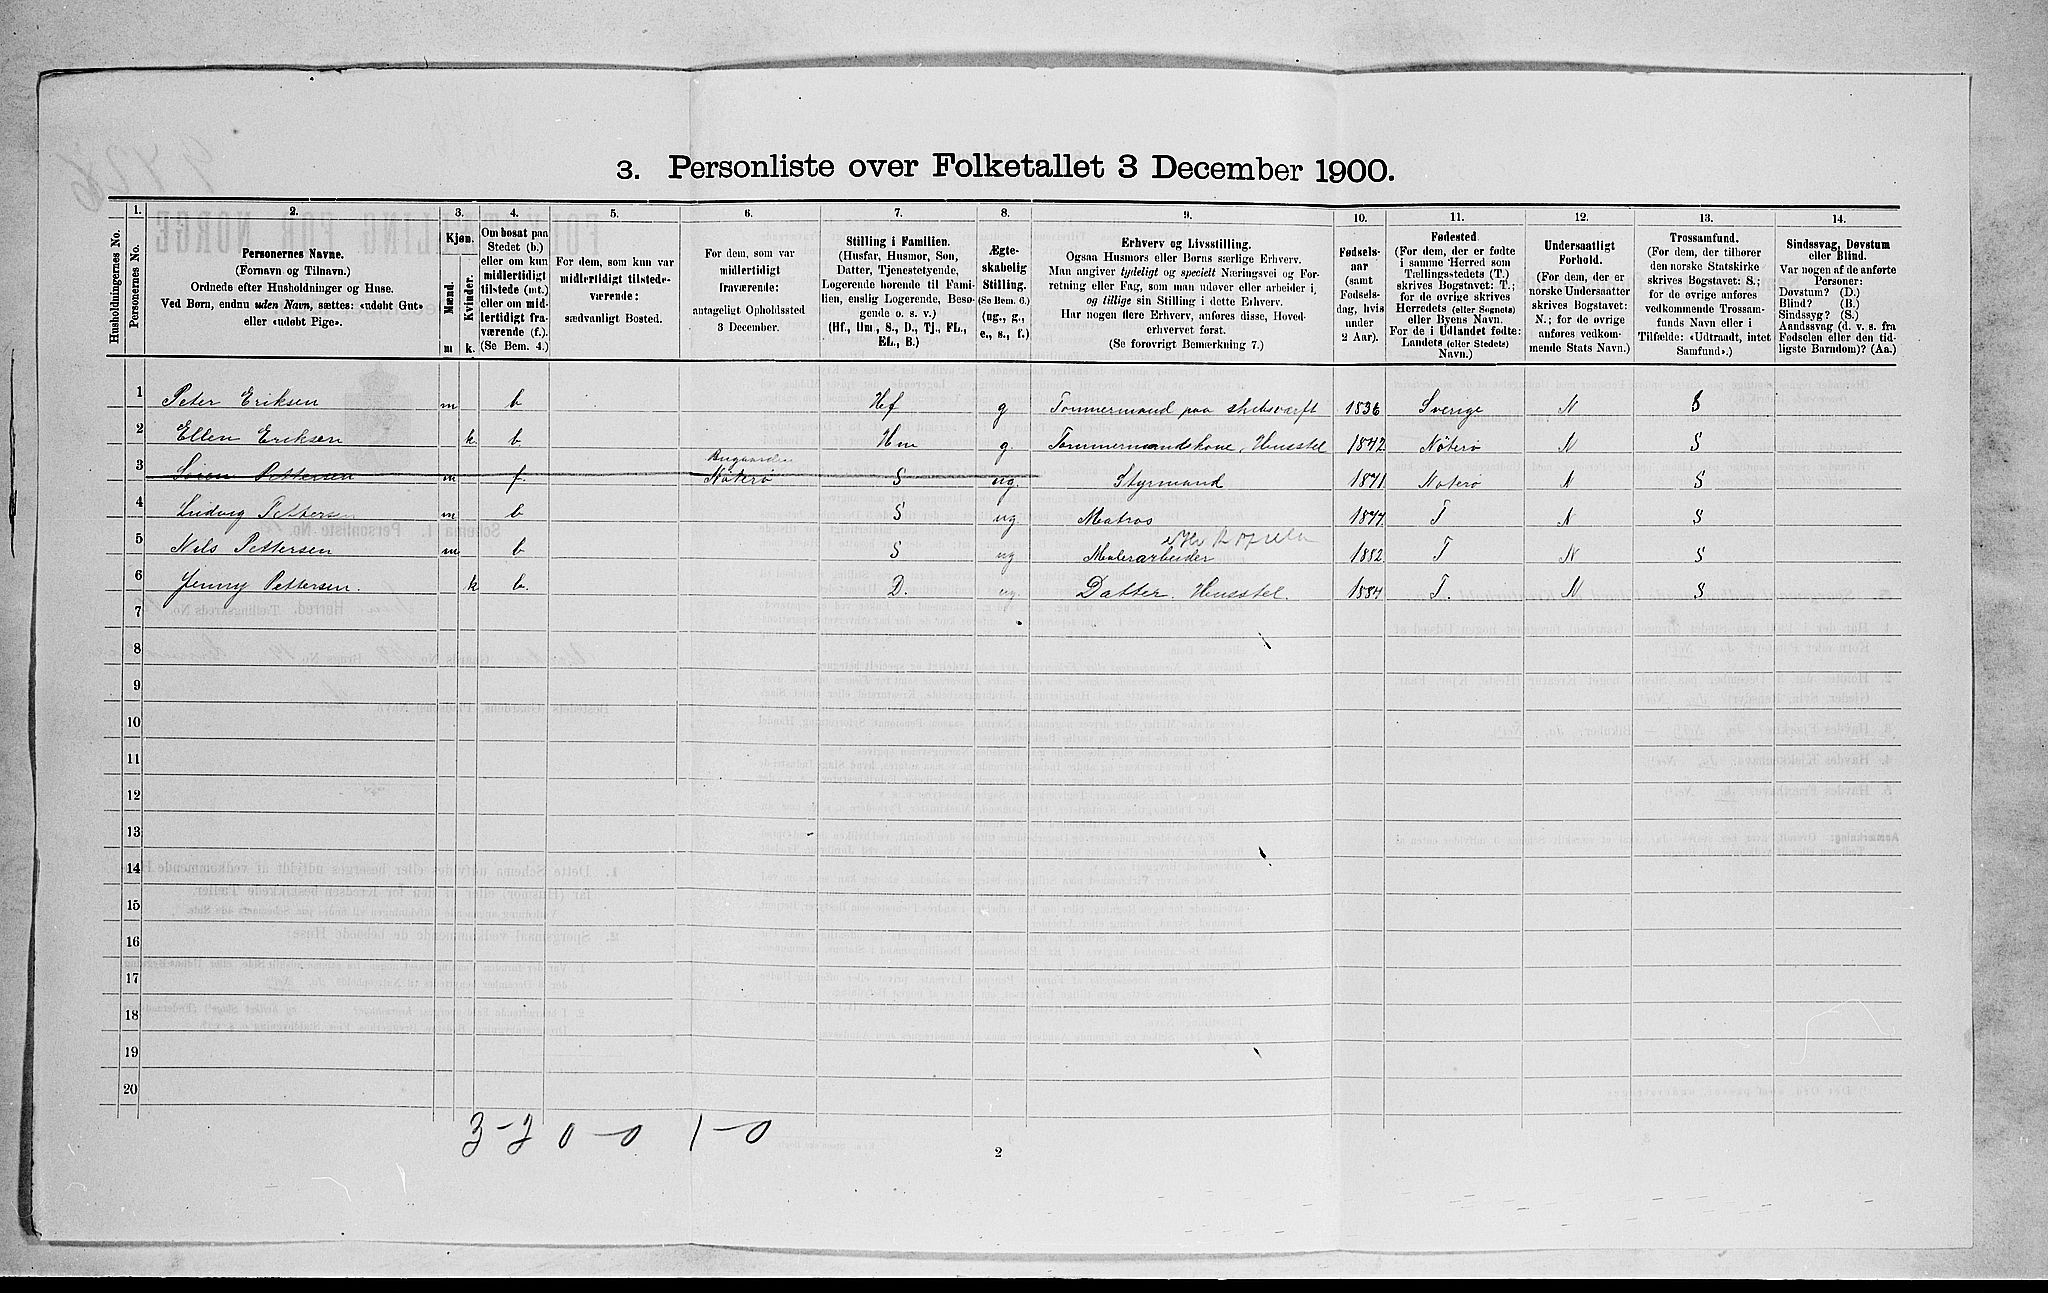 3. Personliste over Folketallet 3 December 1900.
1. 2. 3. 4. 5. 6. 7. 8. 9. 10. 11. 12. 13. 14.
Husholdningernes No.
Personernes No.
Personernes Navne.
(Fornavn og Tilnavn.)
Ordnede efter Husholdninger og Huse.
Ved Børn, endnu uden Navn, sættes: «udøbt Gut»
eller «udøbt Pige».
Kjøn.
Mænd.
Kvinder.
m k.
Om bosat paa
Stedet (b.)
eller om kun
midlertidigt
tilstede (mt.)
eller om mid-
lertidigt fra-
værende (f.).
(Se Bem. 4.)
For dem, som kun var
midlertidigt tilstede-
værende:
sædvanligt Bosted.
For dem, som var
midlertidigt
fraværende:
antageligt Opholdssted
3 December.
Stilling i Familien.
(Husfar, Husmor, Søn,
Datter, Tjenestetyende,
Logerende hørende til Fami-
lien, enslig Logerende, Besø-
gende o. s. v.)
(Hf., Hm., S., D., Tj., FL.,
EL., B.)
Ægte-
skabelig
Stilling.
(Se Bem. 6.)
(ug., g.,
e., s., f.)
Erhverv og Livsstilling.
Ogsaa Husmors eller Børns særlige Erhverv.
Man angiver tydeligt og specielt Næringsvei og For-
retning eller Fag, som man udøver eller arbeider i,
og tillige sin Stilling i dette Erhverv.
Har nogen flere Erhverv, anføres disse, Hoved-
erhvervet først.
(Se forøvrigt Bemærkning 7.)
Fødsels-
aar
(samt
Fødsels-
dag, hvis
under
2 Aar).
Fødested.
(For dem, der er fødte
i samme Herred som
Tællingsstedets (T.)
skrives Bogstavet: T.;
for de øvrige skrives
Herredets (eller Sognets)
eller Byens Navn.
For de i Udlandet fødte:
Landets (eller Stedets)
Navn.)
Undersaatligt
Forhold.
(For dem, der er
norske Undersaatter
skrives Bogstavet:
N.; for de øvrige
anføres vedkom-
mende Stats Navn.)
Trossamfund.
(For dem, der tilhører
den norske Statskirke
skrives Bogstavet: S.;
for de øvrige anføres
vedkommende Trossam-
funds Navn eller i
Tilfælde: «Udtraadt, intet
Samfund».)
Sindssvag, Døvstum
eller Blind.
Var nogen af de anførte
Personer:
Døvstum? (D.)
Blind? (B.)
Sindssyg? (S.)
Aandssvag (d. v. s. fra
Fødselen eller den tid-
ligste Barndom)? (Aa.)
1 Peter Eriksen m b Hf g Tømmermand paa skibsværft 1836 Sverige N S
2 Ellen Eriksen k b Hm g. Tømmermandskone, Husstel 1842 Nøterø N S
3 Søren Pettersen m f Nøterø S ug. Styrmand 1871 Nøterø N S
4 Ludvig Pettersen m b S ug Matros 1877 T N S
5 Nils Pettersen m b S ug Malerarbeider 1882 T N S
6 Jenny Pettersen. k b. D. ug. Datter. Husstel. 1884 T. N S
7
8
9
10
11
12
13
14
15
16
17
18
19
20
3-3 0-0 1-0
2